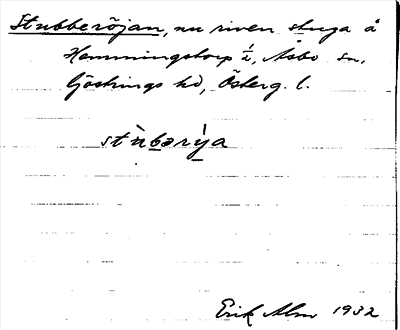 Stubberöjan, nu riven stuga å
Hemmingstorp ½, Åsbo sn,
Göstrings hd, Österg. l.
stùbərỳa
Erik Alm 1932